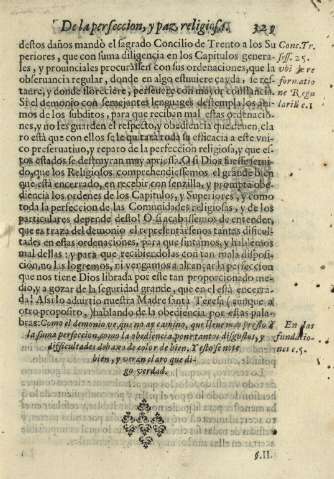 De la perfeccion, y paz religiosa. 329
destos daños mandò el sagrado Concilio de Trento a los Su
periores, que con suma diligencia en los Capitulos genera-
les, y prouinciales procurassen con sus ordenaciones, que la
obseruancia regular, donde en algo estuuiere cayda, se res-
taure, y donde floreciere, perseuere con mayor constancia.
Si el demonio con semejantes lenguages destempla los ani-
mos de los subditos, para que reciban mal estas ordenacio-
nes, y no les guarden el respeto, y obediencia que deuen, cla
ro està que con ellos se le quitarà toda la eficacia a este vni-
co preseruatiuo, y reparo de la perfeccion religiosa, y que es-
tos estados se destruyran muy apriessa. O si Dios fuesse serui-
do, que los Religiosos comprehendiessemos el grande bien
que està encerrado, en recibir con senzilla, y prompta obe-
diencia los ordenes de los Capitulos, y Superiores, y como
toda la perfeccion de las Comunidades religiosas, y de los
particulares depende desto! O si acabassemos de entender,
que es traza del demonio el representarsenos tantas dificul-
tades en estas ordenaciones, para que sintamos, y hablemos
mal dellas: y para que recibiendolas con tan mala disposi-
cion, no las logremos, ni vengamos a alcançar la perfeccion
que nos tiene Dios librada por este tan proporcionado me-
dio, y a gozar de la seguridad grande, que en el està encerra-
da! Assi lo aduirtio nuestra Madre santa Teresa (aunque a
otro proposito) hablando de la obediencia por estas pala-
bras: Como el demonio ve, que no ay camino, que lleue mas presto a
la suma perfeccion, como la obediencia pone tantos disgustos, y
dificultades debaxo de color de bien. Y esto se note
bien, y veran claro que di-
go verdad.
Conc. Tr.
sess. 25.
vbi de re
formatio
ne Regu
larib. c. 1.
En las
fundacio-
nes c. 5.
§. II.